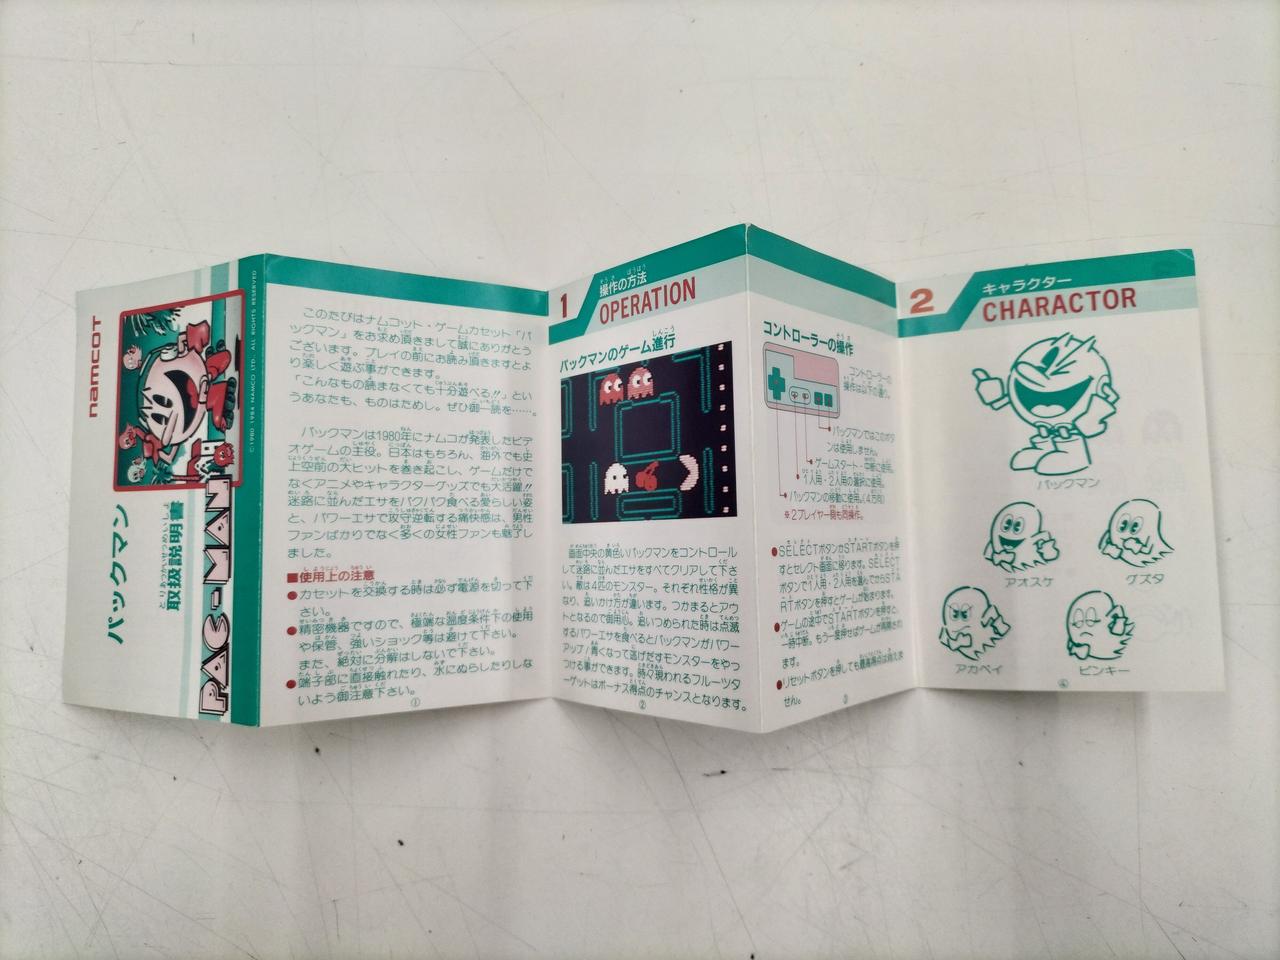 namcot
パックマン
とりあつかいせつめいしょ
取扱説明書
PAC-MAN
©1980 1984 NAMCO LTD., ALL RIGHTS RESERVED
このたびはナムコット・ゲームカセット「パ
ックマン」をお求め頂きまして誠にありがとう
ございます。プレイの前にお読み頂きますとよ
り楽しく遊ぶ事ができます。
「こんなもの読まなくても十分遊べる!!」とい
うあなたも、ものはためし。ぜひ御一読を……。
パックマンは1980年にナムコが発表したビデ
オゲームの主役。日本はもちろん、海外でも史
上空前の大ヒットを巻き起こし、ゲームだけで
なくアニメやキャラクターグッズでも大活躍!!
迷路に並んだエサをパクパク食べる愛らしい姿
と、パワーエサで攻守逆転する痛快感は、男性
ファンばかりでなく多くの女性ファンも魅了し
ました。
■使用上の注意
●カセットを交換する時は必ず電源を切って下
さい。
●精密機器ですので、極端な温度条件下の使用
や保管、強いショック等は避けて下さい。
また、絶対に分解はしないで下さい。
●端子部に直接触れたり、水にぬらしたりしな
いよう御注意下さい。
①
1
操作の方法
OPERATION
パックマンのゲーム進行
画面中央の黄色いパックマンをコントロール
して迷路に並んだエサをすべてクリアして下さ
い。敵は4匹のモンスター。それぞれ性格が異
なり、追いかけ方が違います。つかまるとアウ
トとなるので御用心。追いつめられた時は点滅
するパワーエサを食べるとパックマンがパワー
アップ!青くなって逃げだすモンスターをやっ
つける事ができます。時々現われるフルーツタ
ーゲットはボーナス得点のチャンスとなります。
②
コントローラーの操作
コントローラーの
操作は以下の通り。
パックマンではこのボタ
ンは使用しません。
ゲームスタート・中断に使用。
1人用・2人用の選択に使用。
パックマンの移動に使用。(4方向)
※2プレイヤー側も同操作。
●SELECTボタンかSTARTボタンを押
すとセレクト画面に移ります。SELECT
ボタンで1人用・2人用を選んでからSTA
RTボタンを押すとゲームが始まります。
●ゲームの途中でSTARTボタンを押すと、
一時中断。もう一度押せばゲームが再開され
ます。
●リセットボタンを押しても最高得点は消えま
せん。
③
2
キャラクター
CHARACTOR
パックマン
アオスケ
グズタ
アカベイ
ピンキー
④